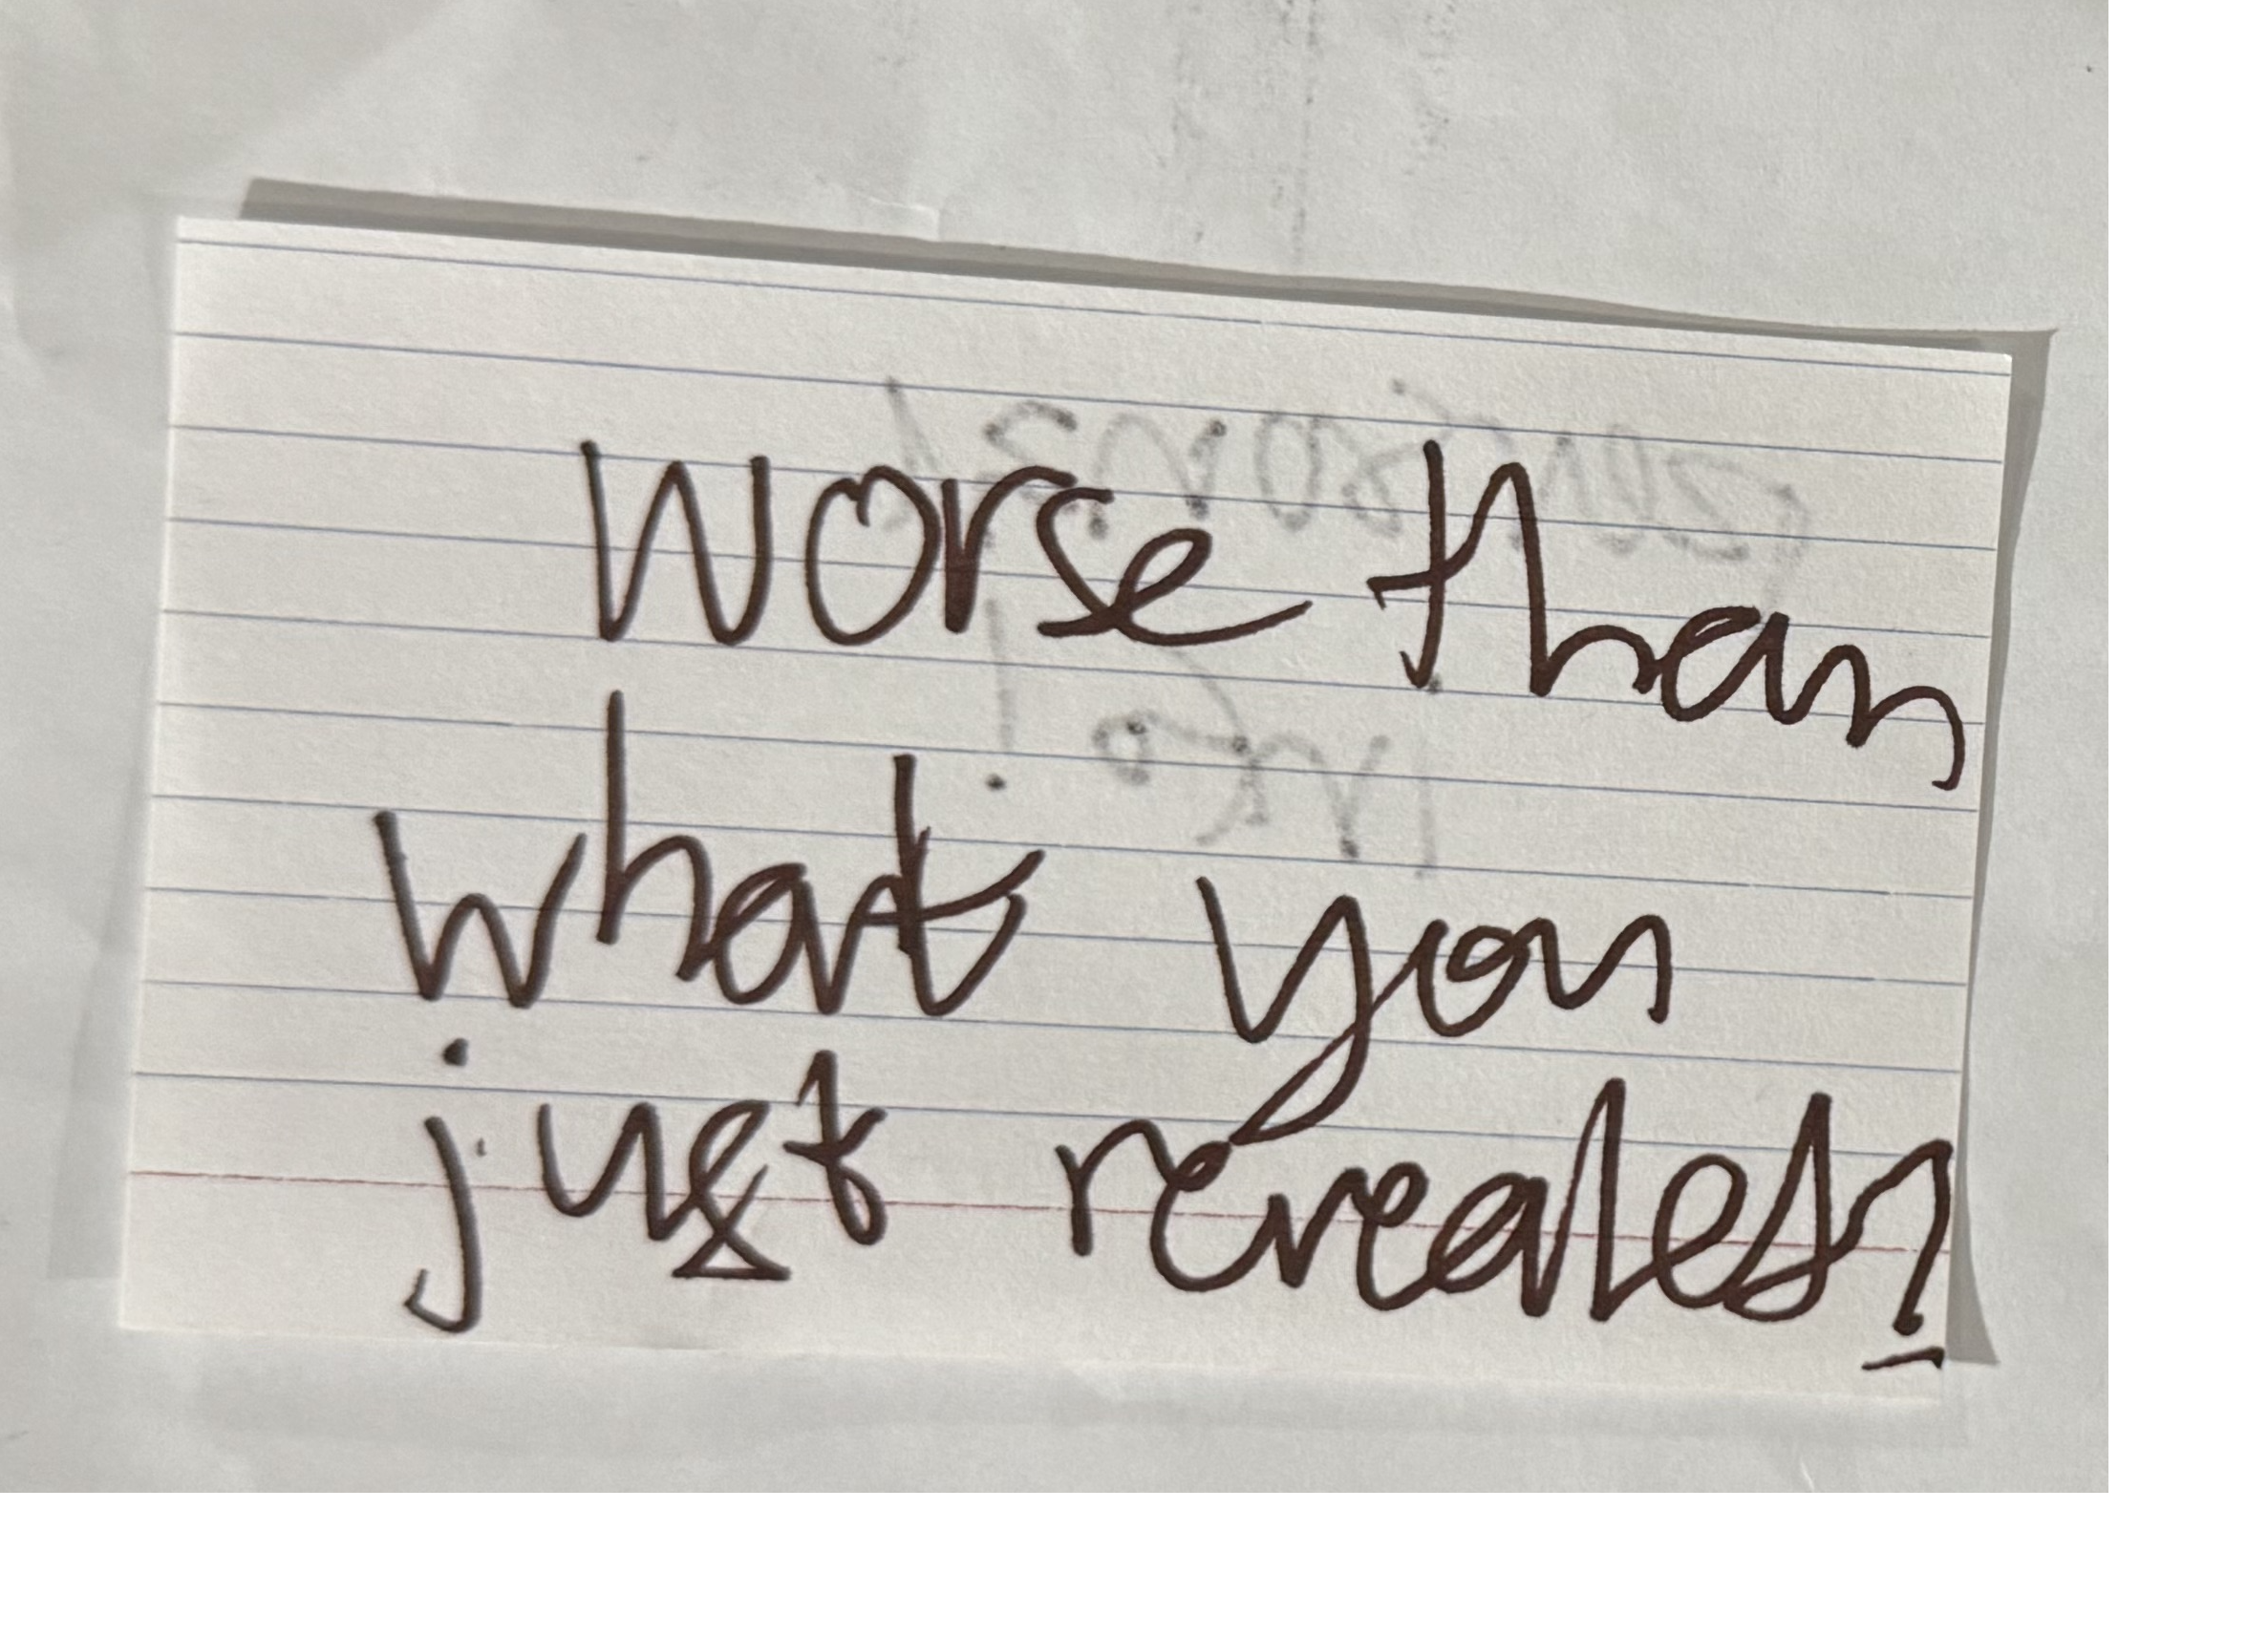 worse than
what you
just revealed?